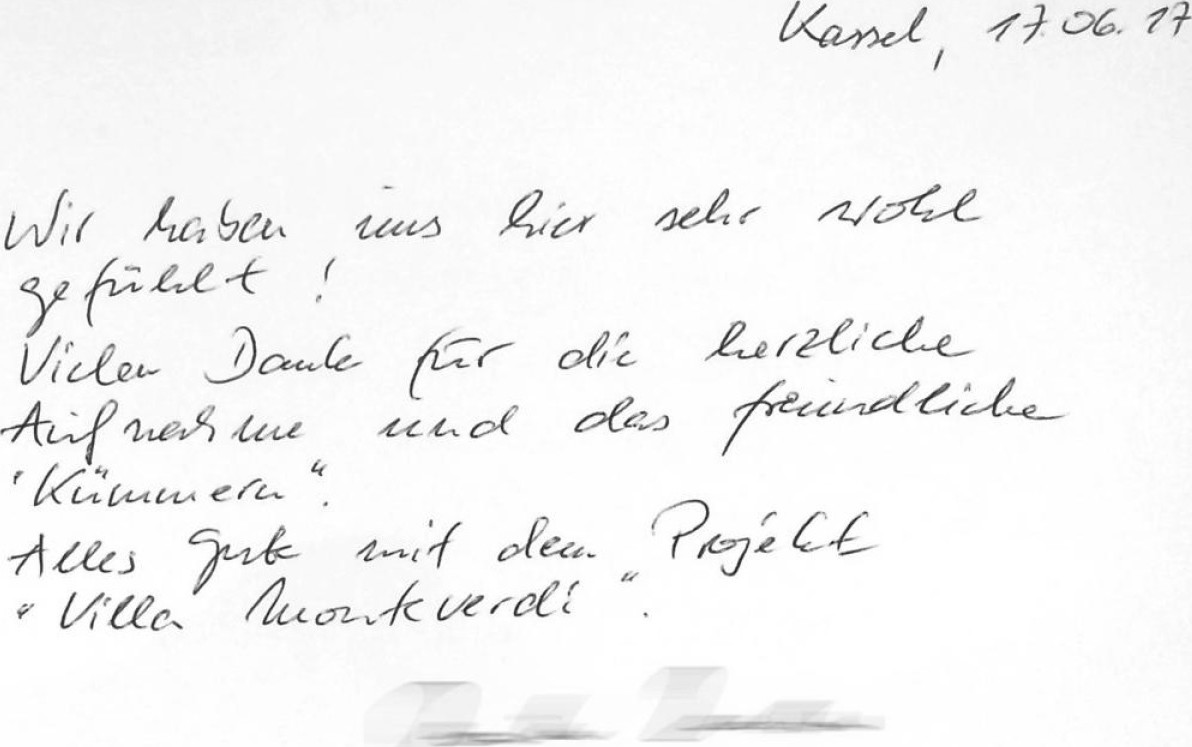 Kassel, 17.06.17
Wir haben uns hier sehr wohl
gefühlt!
Vielen Dank für die herzliche
Aufnahme und das freundliche
"Kümmern".
Alles Gute mit dem Projekt
"Villa Monteverdi".